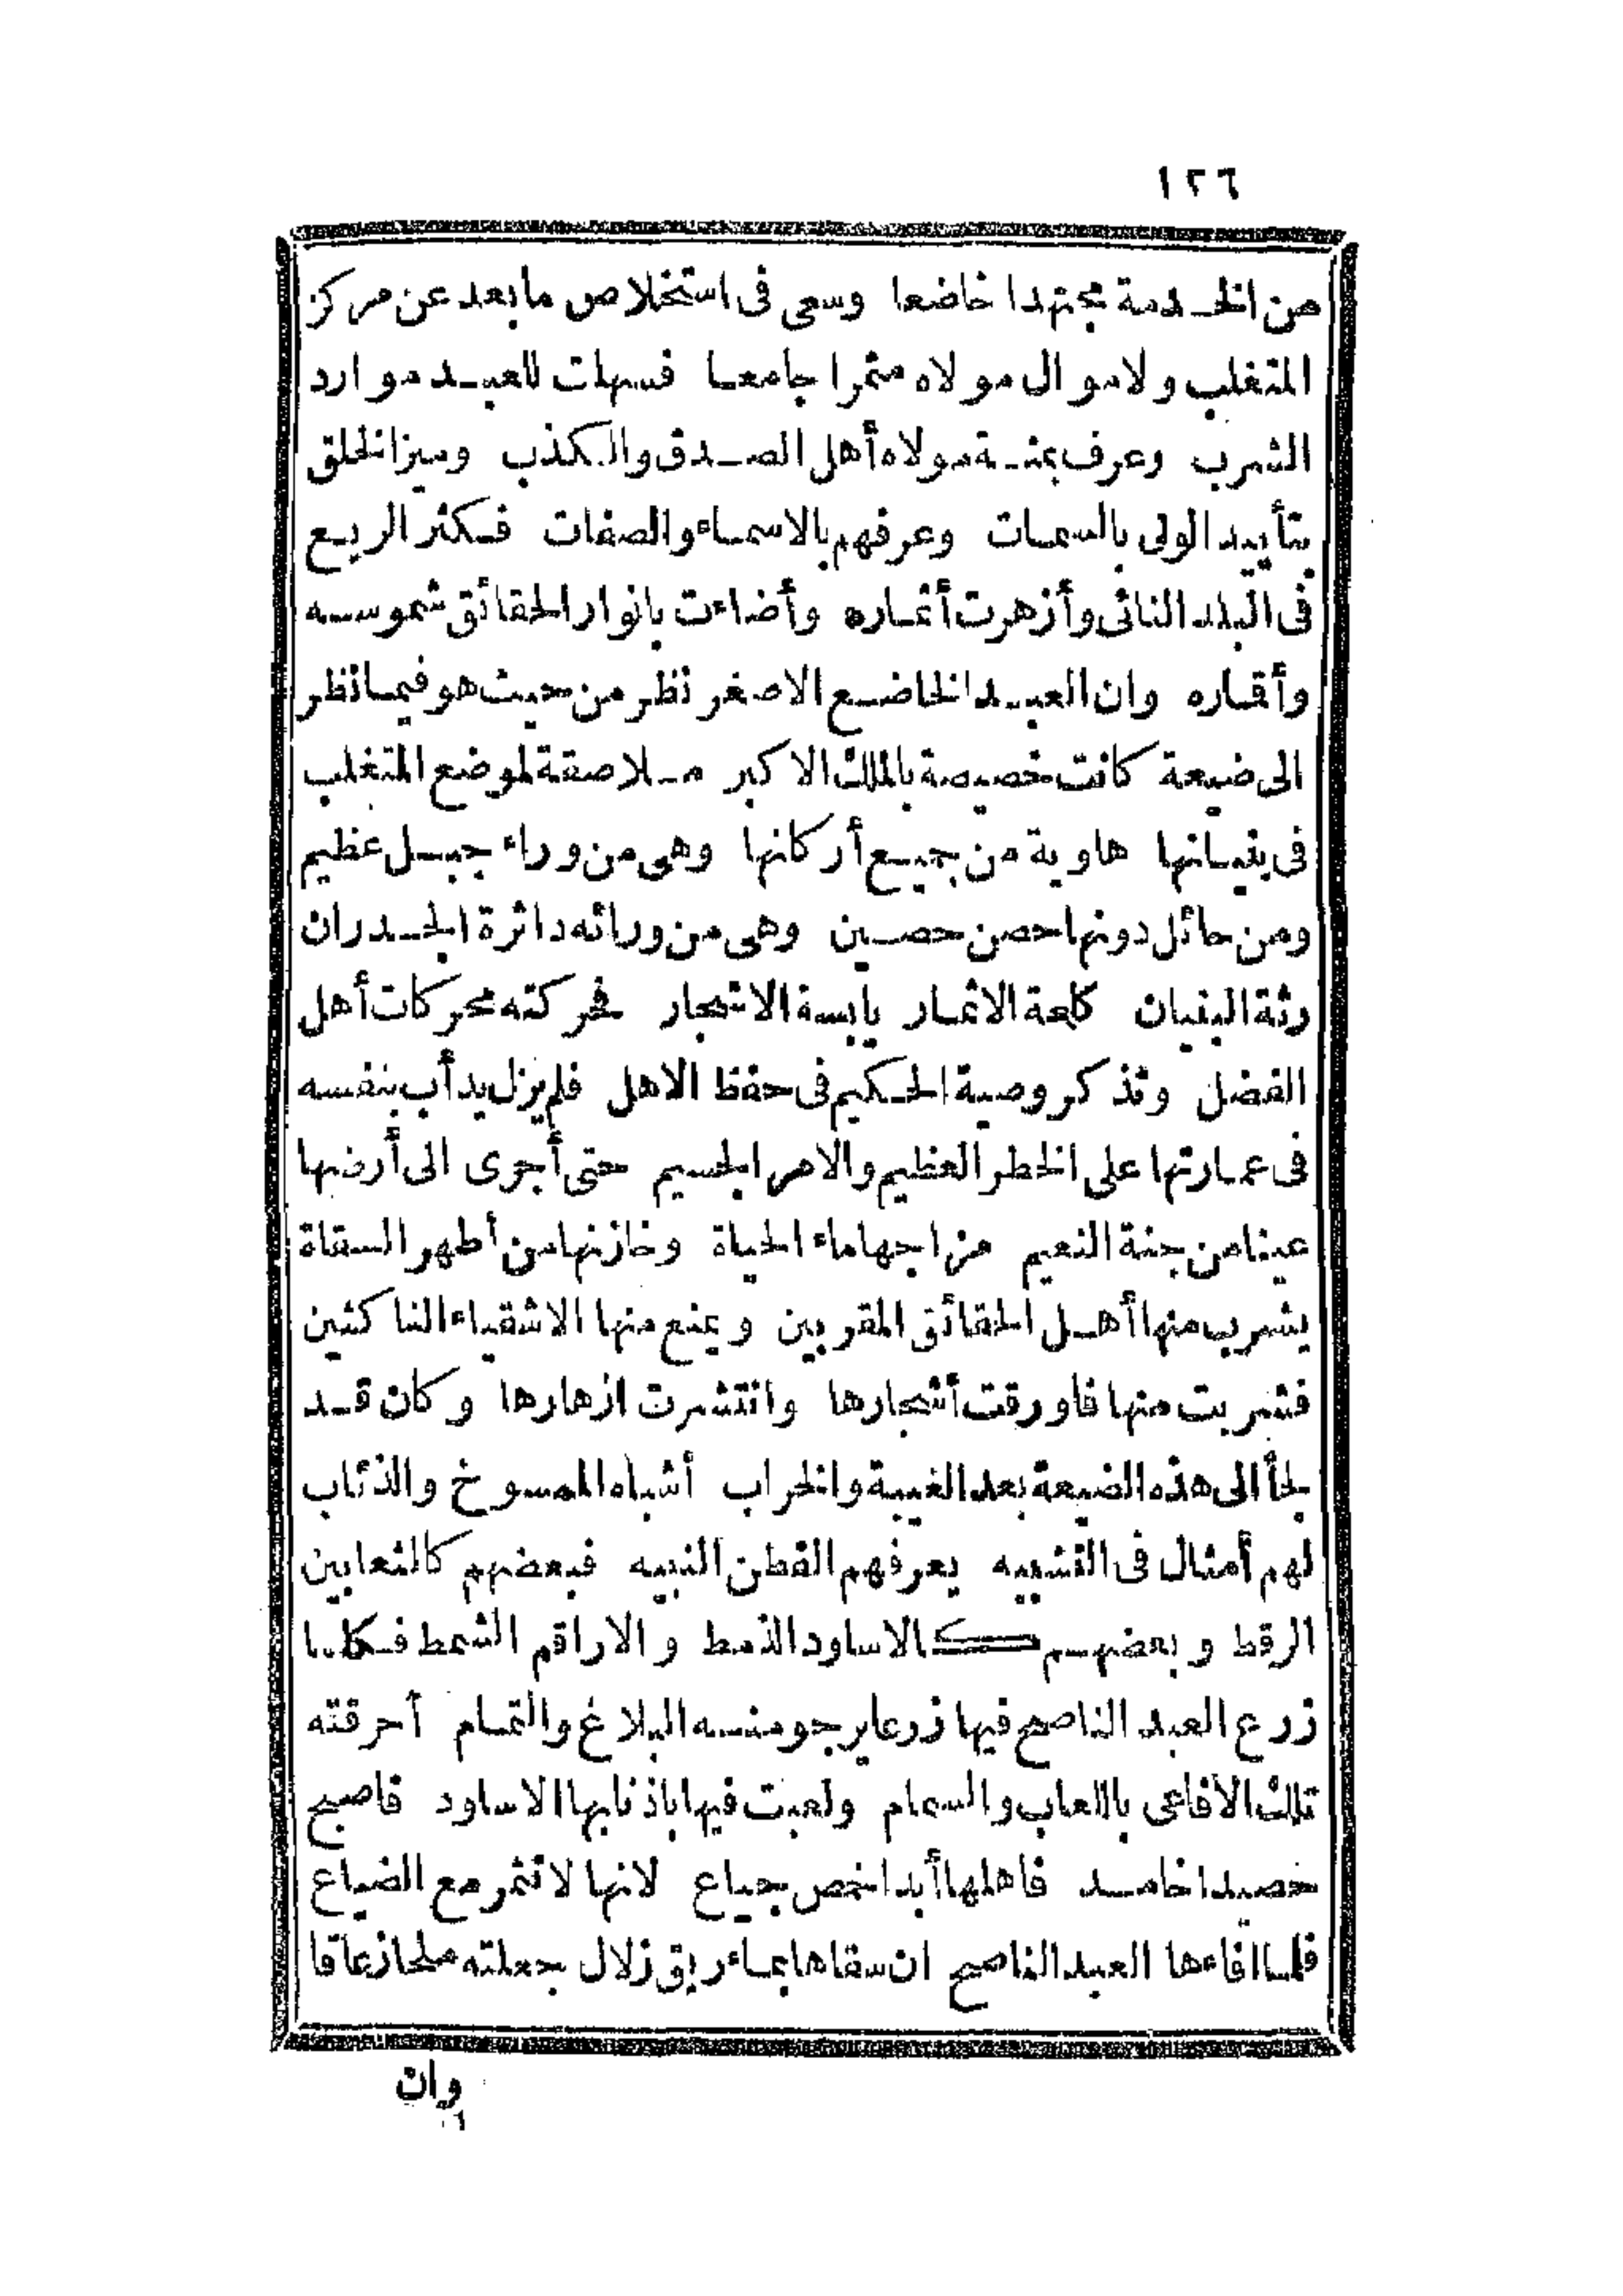 ١٢٦
من الخدمة مجتهدا خاضعا وسعى فى استخلاص ما بعد عن مركز
المتغلب ولاموال مولاه مثمرا جامعا فسهلت للعبد موارد
الشرب وعرف بمنة مولاه أهل الصدق والكذب وميز الخلق
بتأييد الولى بالسمات وعرفهم بالاسماء والصفات فكثر الريع
فى البلد النائى وأزهرت أثماره وأضاءت بانوار الحقائق شموسه
وأقماره وان العبد الخاضع الاصغر نظر من حيث هو فيما نظر
الى ضيعة كانت خصيصة بالملك الاكبر ملاصقة لموضع المتغلب
فى بنيانها هاوية من جميع أركانها وهى من وراء جبل عظيم
ومن حائل دونها حصن حصين وهى من ورائه داثرة الجدران
رثة البنيان كالحة الاثمار يابسة الاشجار فحركته محركات أهل
الفضل وتذكر وصية الحكيم فى حفظ الاهل فلم يزل يدأب بنفسه
فى عمارتها على الخطر العظيم والامر الجسيم حتى أجرى الى أرضها
عينا من جنة النعيم مزاجها ماء الحياة وخازنها من أطهر السقاة
يشرب منها أهل الحقائق المقربين ويمنع منها الاشقياء الناكثين
فشربت منها فاورقت أشجارها وانتشرت ازهارها وكان قد
لجأ الى هذه الضيعة بعد الغيبة والخراب أشباه المسوخ والذئاب
لهم أمثال فى التشبيه يعرفهم الفطن النبيه فبعضهم كالثعابين
الرقط وبعضهم كالاساود النمط والاراقم الشمط فكلما
زرع العبد الناصح فيها زرعا يرجو منه البلاغ والتمام أحرقته
تلك الافاعى باللعاب والسمام ولعبت فيها باذنابها الاساود فاصبح
حصيدا خامد فاهلها أبدا خمص جياع لانها لا تثمر مع الضياع
فلما افاءها العبد الناصح ان سقاها بماء ريق زلال جعلته ملحا زعاقا
وان